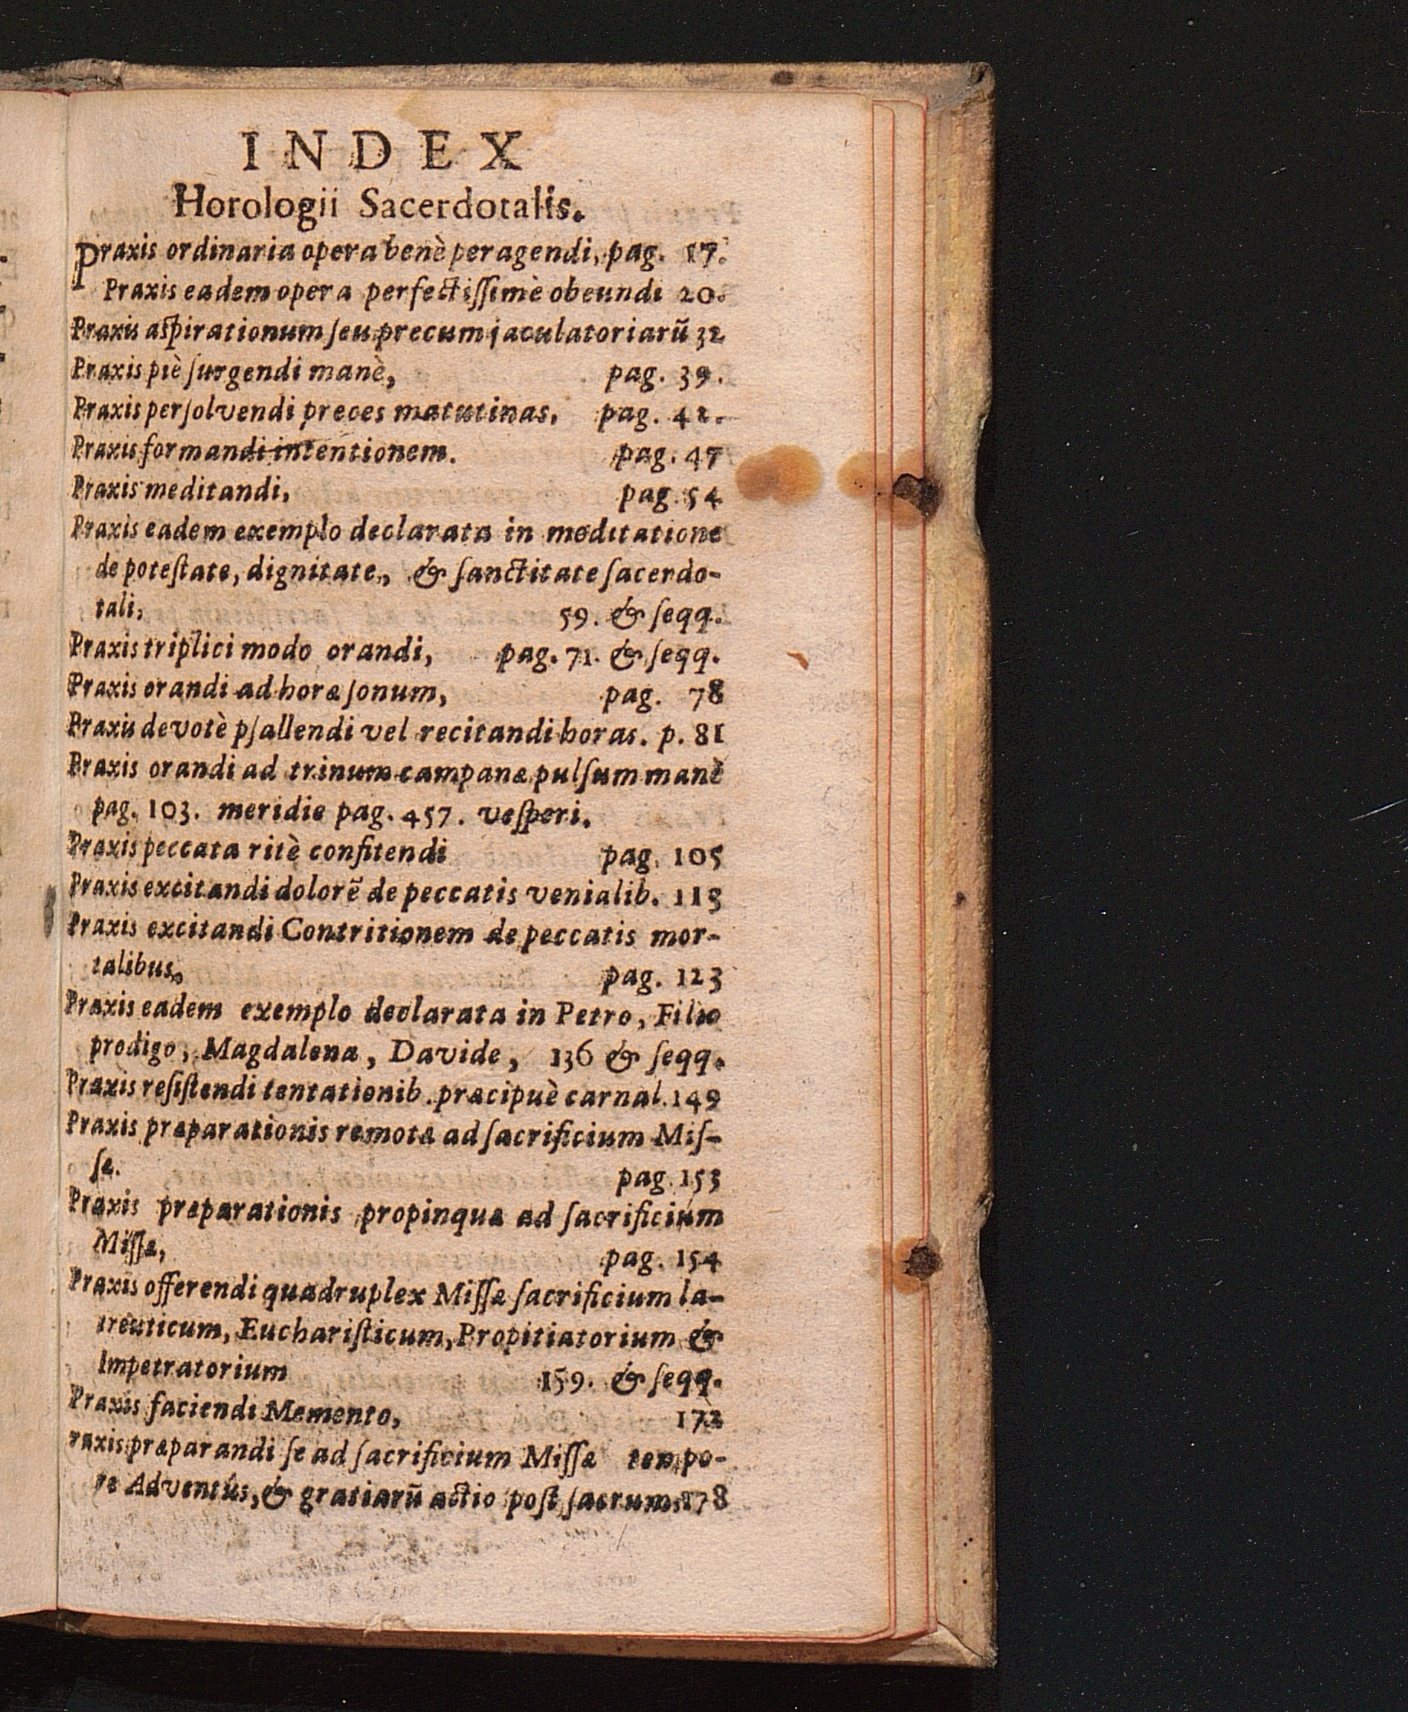 INDEX
Horologii Sacerdotalis.
Praxis ordinaria opera benè peragendi, pag. 17.
Praxis eadem opera perfectiſſimè obeundi 20.
Praxis aſpirationum ſeu precum jaculatoriarũ 32
Praxis piè ſurgendi manè, pag. 39.
Praxis perſolvendi preces matutinas, pag. 42.
Praxis formandi intentionem. pag. 47
Praxis meditandi, pag. 54
Praxis eadem exemplo declarata in meditatione
de poteſtate, dignitate, & ſanctitate ſacerdo-
tali, 59. & ſeqq.
Praxis triplici modo orandi, pag. 71. & ſeqq.
Praxis orandi ad horæ ſonum, pag. 78
Praxis devotè pſallendi vel recitandi horas. p. 81
Praxis orandi ad trinum campanæ pulſum manè
pag. 103. meridie pag. 457. veſperi.
Praxis peccata ritè confitendi pag. 105
Praxis excitandi dolorẽ de peccatis venialib. 113
Praxis excitandi Contritionem de peccatis mor-
talibus, pag. 123
Praxis eadem exemplo declarata in Petro, Filio
prodigo, Magdalena, Davide, 136 & ſeqq.
Praxis reſiſtendi tentationib. præcipuè carnal. 149
Praxis præparationis remotæ ad ſacrificium Miſ-
ſæ. pag. 153
Praxis præparationis propinquæ ad ſacrificium
Miſſæ, pag. 154
Praxis offerendi quadruplex Miſſæ ſacrificium la-
treuticum, Euchariſticum, Propitiatorium &
Impetratorium 159. & ſeqq.
Praxis faciendi Memento, 172
raxis præparandi ſe ad ſacrificium Miſſæ tempo-
re Adventûs, & gratiarũ actio poſt ſacrum. 178